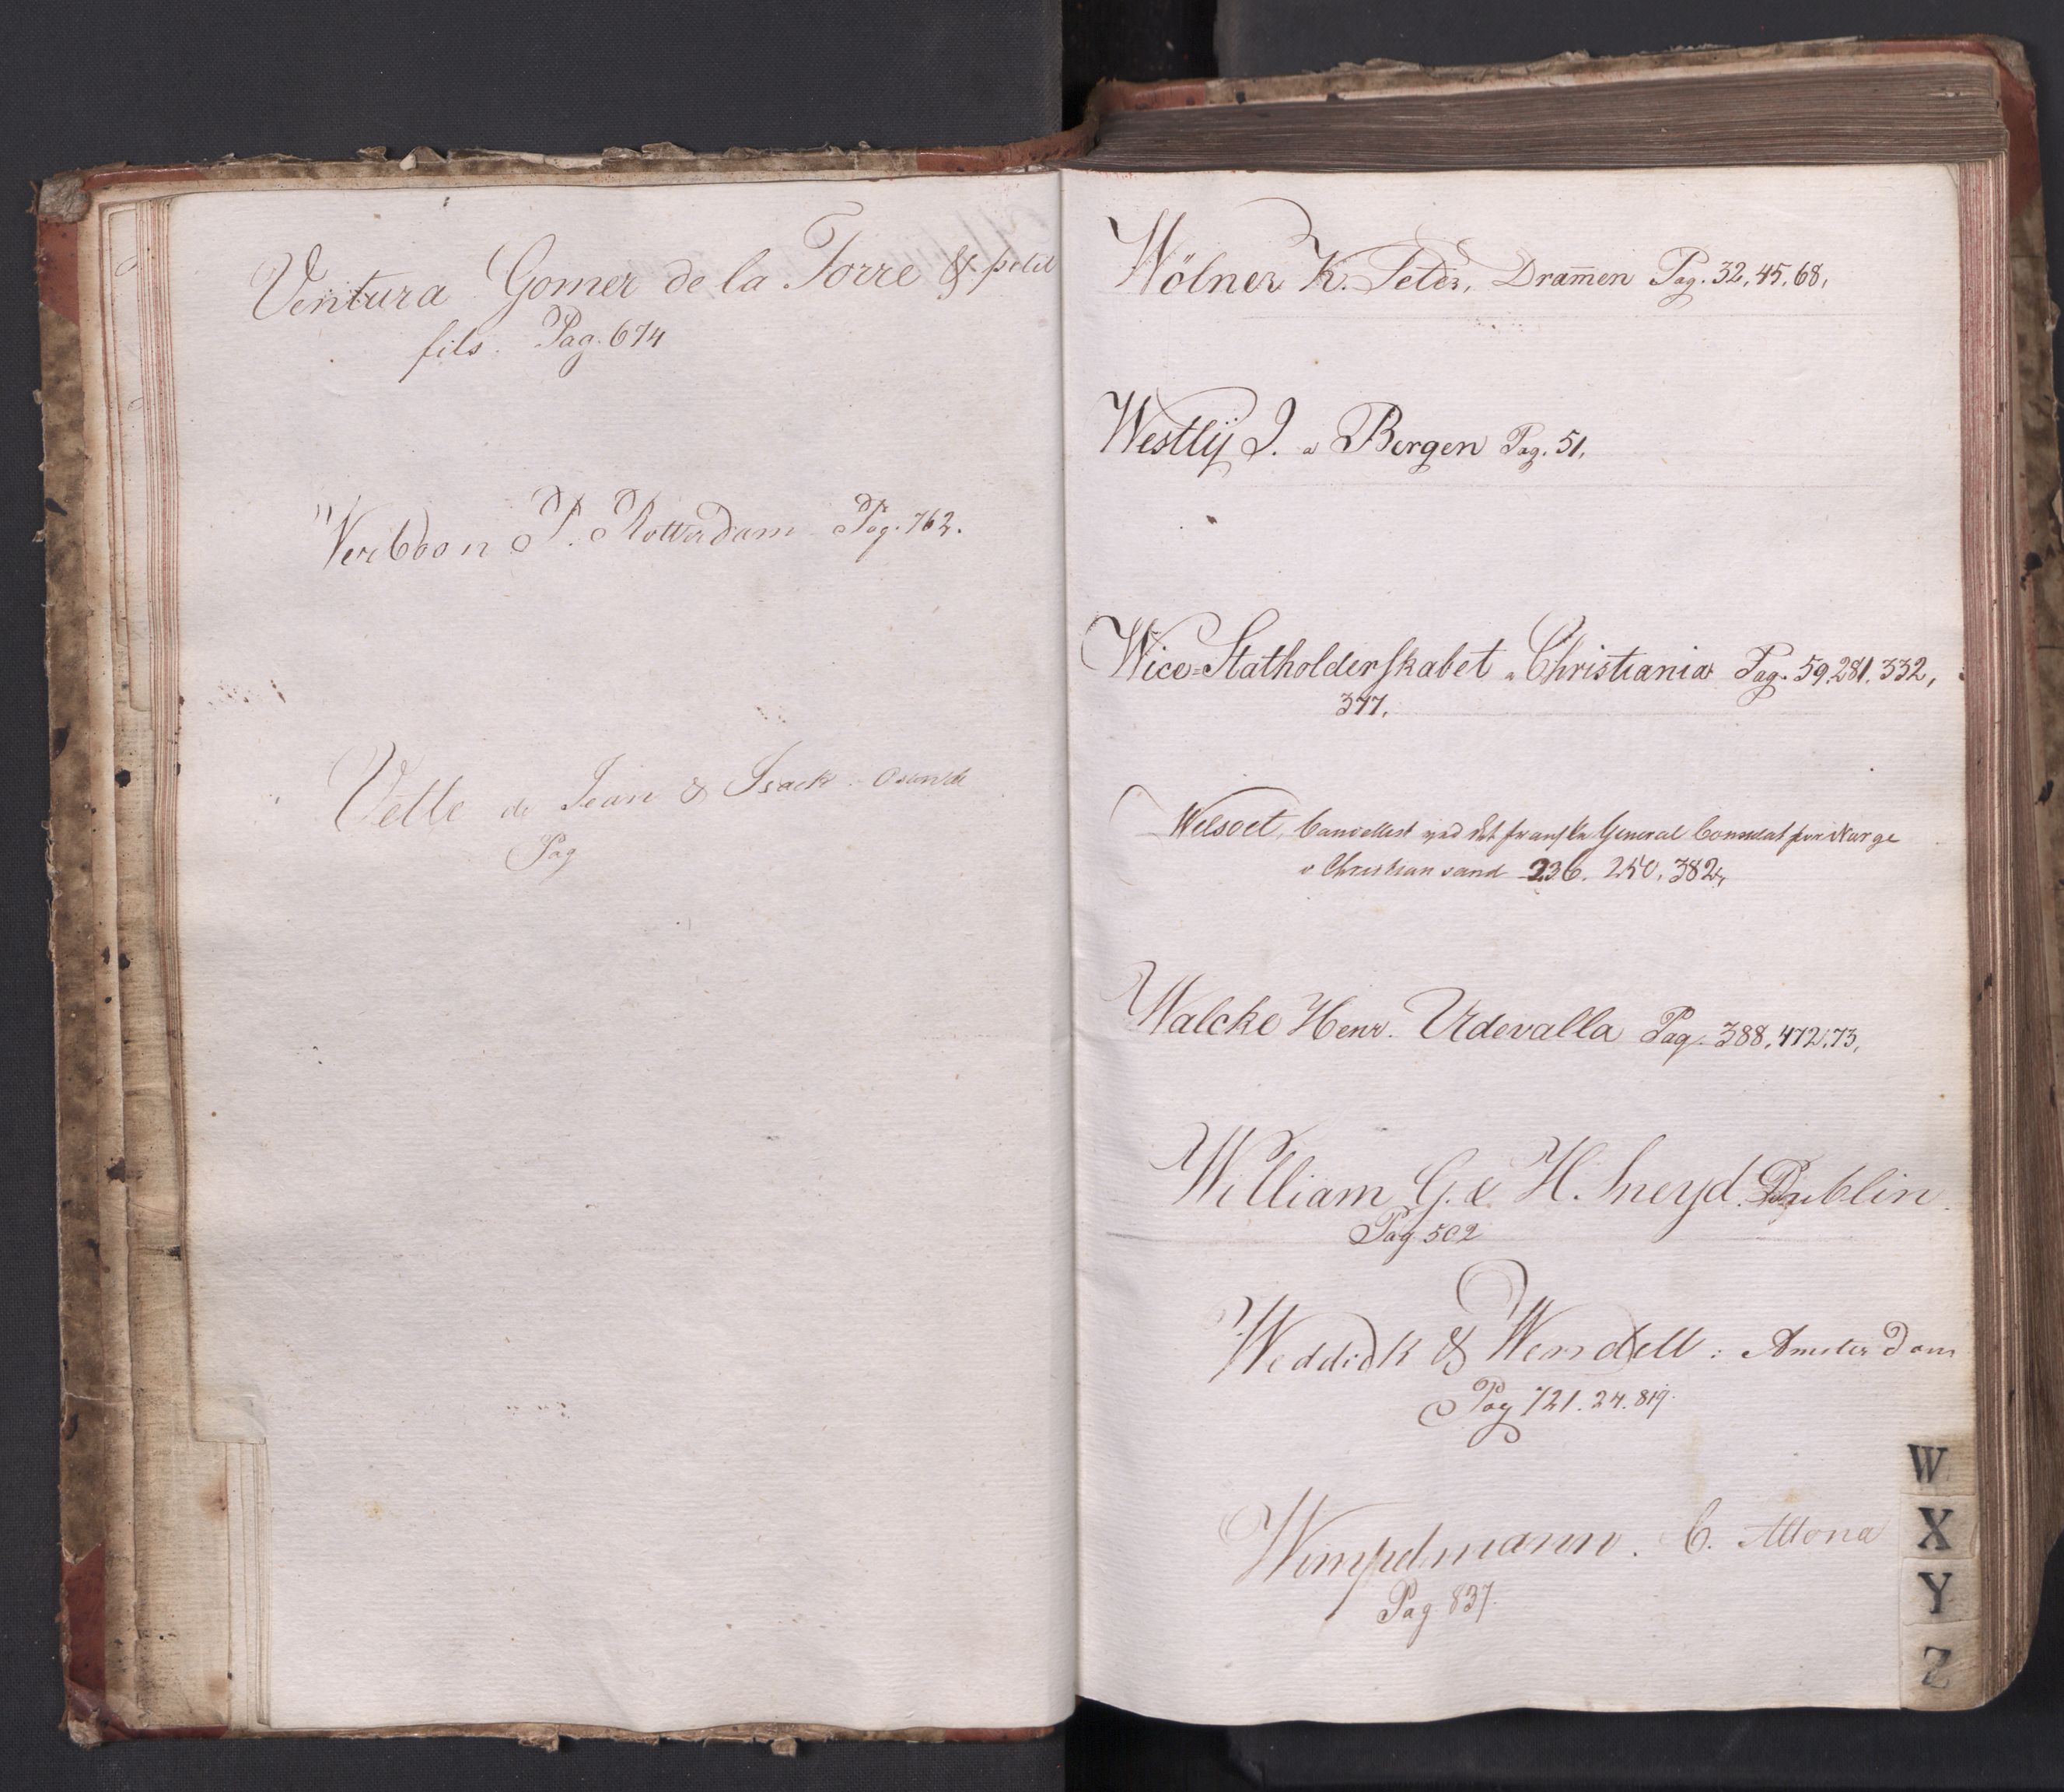 Ventura Gomer de la Torre & petit
fils. Pag. 674
Verbboon P. Rotterdam Pag. 762.
Velle de Jean & Isack Ostende
Pag
Wölner K. Peter, Dram̅en Pag. 32, 45, 68,
Westlÿ J. a Bergen Pag. 51,
Wice=Statholderskabet a Christiania Pag. 59, 281. 332,
377,
Welsoet, Cancellist ved det franske General Consulat for Norge
a Christiansand 236. 250, 382,
Walcke Henr. Udevalla Pag. 388, 472, 73,
William G. & H. Sneyd. Dublin
Pag 502
Weddick & Wendell: Amsterdam
Pag 721. 24. 819.
Wimpelmann. C. Altona
Pag 837.
W
X
Y
Z